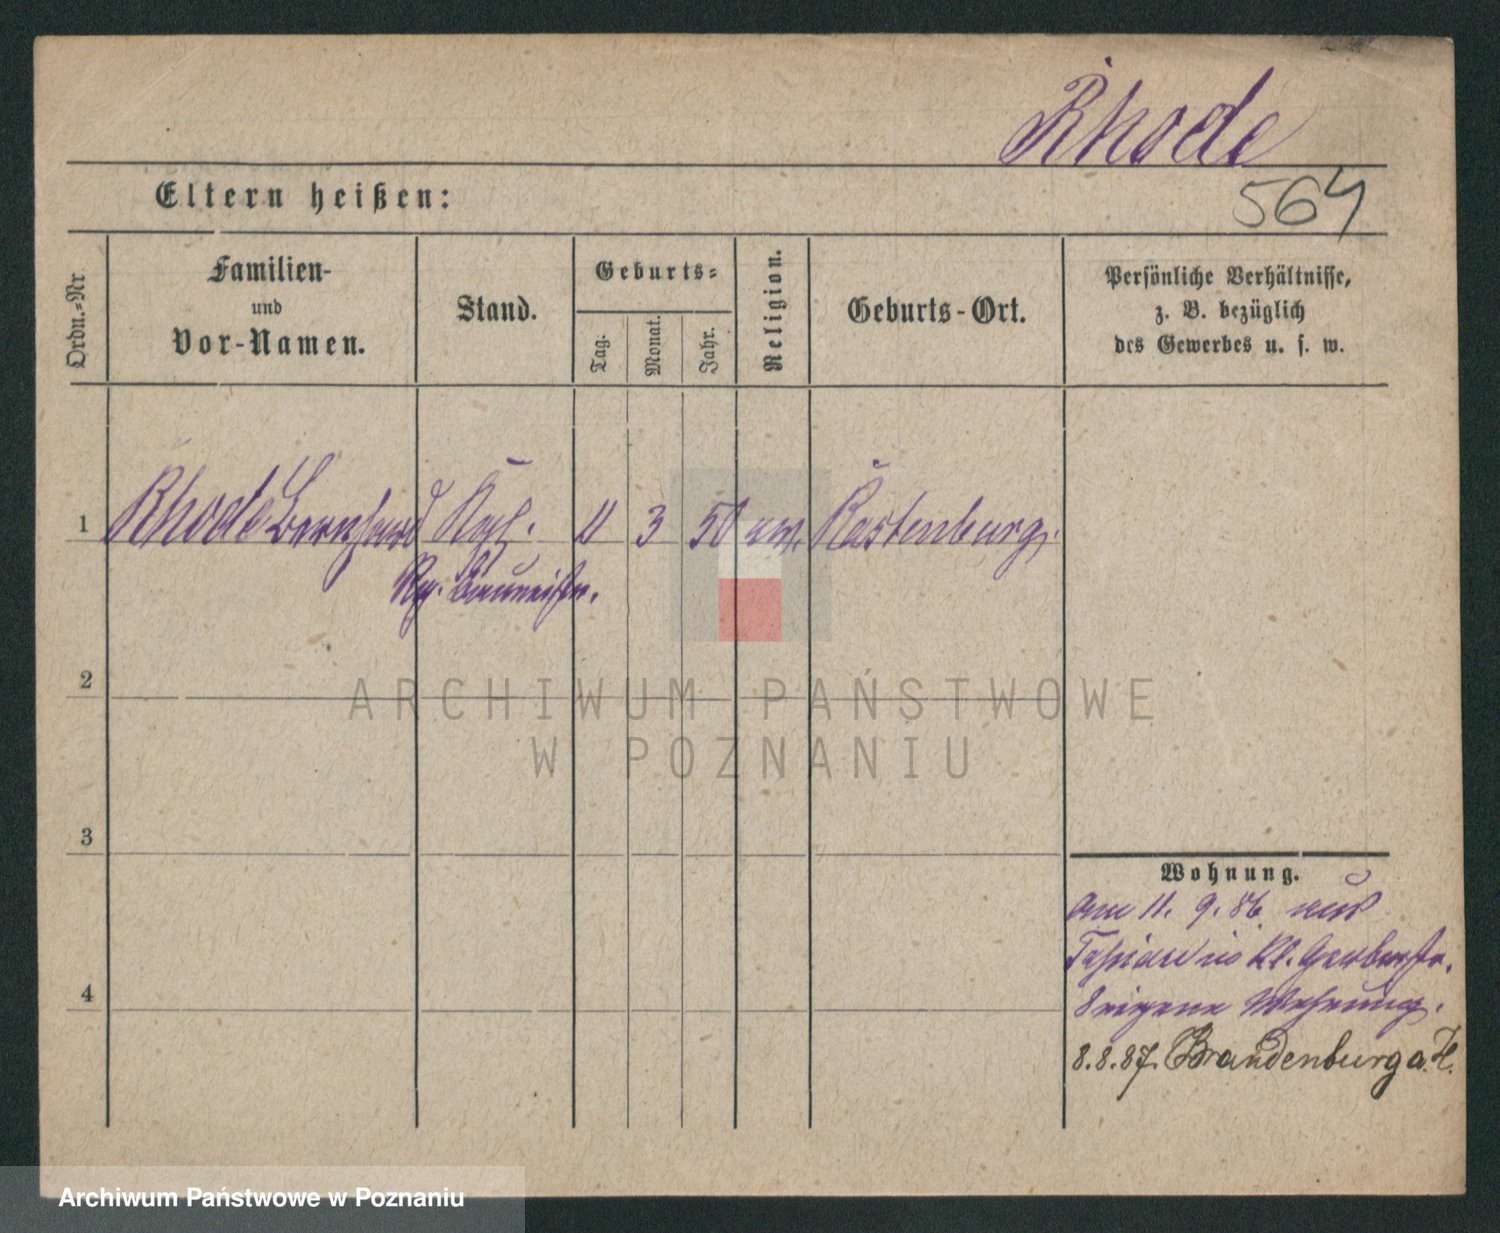 Rhode
564
Eltern heißen:
Ordn.-Nr.
Familien-
und
Vor-Namen.
Stand.
Geburts-
Tag.
Monat.
Jahr.
Religion.
Geburts-Ort.
Persönliche Verhältnisse,
z. B. bezüglich
des Gewerbes u. s. w.
1 Rhode Bernhard Kgl. 11 3 50 ev. Rastenburg.
Rg. Baumeister.
2
ARCHIWUM PAŃSTWOWE
W POZNANIU
3
Wohnung.
Am 11. 9. 86 aus
Tapiau in Kl. Gerberstr.
8 eigene Wohnung.
4
8.8.87. Brandenburg a.H.
Archiwum Państwowe w Poznaniu